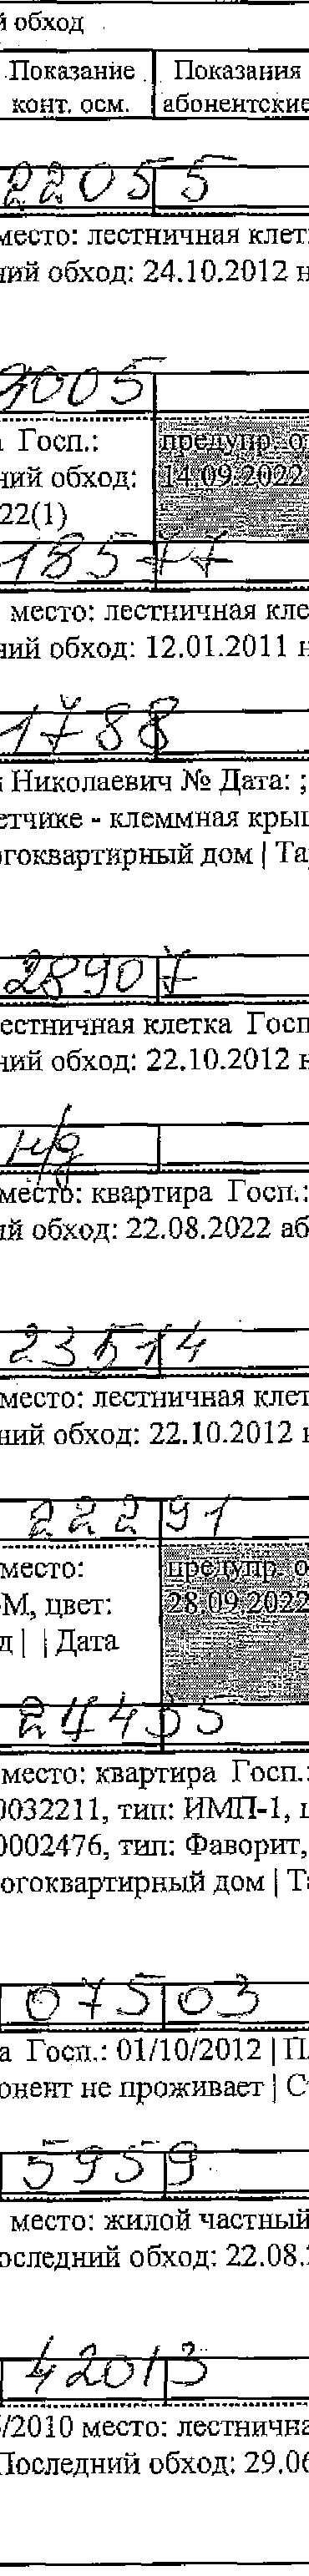 й обход
Показание Показания
конт. осм. абонентские
22055
место: лестничная клет
ний обход: 24.10.2012 н
9005
а Госп.: предупр. о
ний обход: 14.09.2022
22(1)
18577
место: лестничная кле
ний обход: 12.01.2011 н
1788
Николаевич № Дата: ;
етчике - клеммная крыш
огоквартирный дом | Та
28907
естничная клетка Госп
ний обход: 22.10.2012 н
н/д
место: квартира Госп.:
ий обход: 22.08.2022 аб
23514
место: лестничная клет
ний обход: 22.10.2012 н
22291
место: предупр. о
М, цвет: 28.09.2022
д | | Дата
24435
место: квартира Госп.:
0032211, тип: ИМП-1, ц
0002476, тип: Фаворит,
огоквартирный дом | Та
07503
а Госп.: 01/10/2012 | Пл
онент не проживает | С
5959
место: жилой частный
оследний обход: 22.08.
42013
/2010 место: лестнична
Последний обход: 29.06